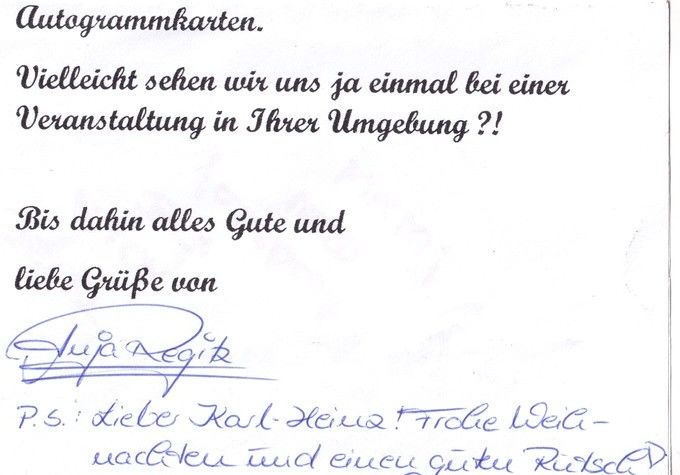 Autogrammkarten.
Vielleicht sehen wir uns ja einmal bei einer
Veranstaltung in Ihrer Umgebung ?!
Bis dahin alles Gute und
liebe Grüße von
Anja Regitz
P.S.: Lieber Karl-Heinz! Frohe Weih-
nachten und einen guten Rutsch